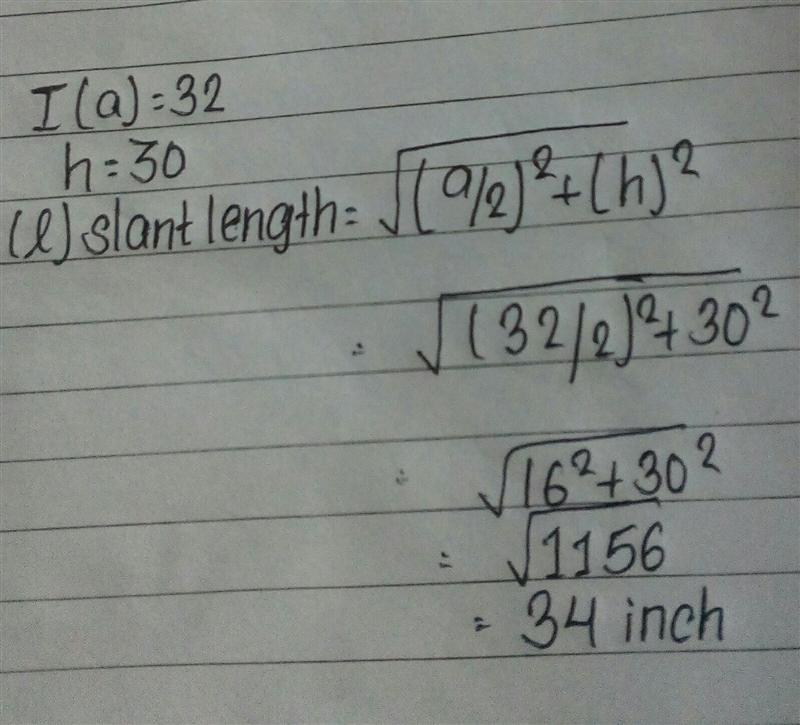 I(a)=32
h=30
(l) slant length= √(a/2)²+(h)²
= √(32/2)²+30²
= √16²+30²
= √1156
= 34 inch